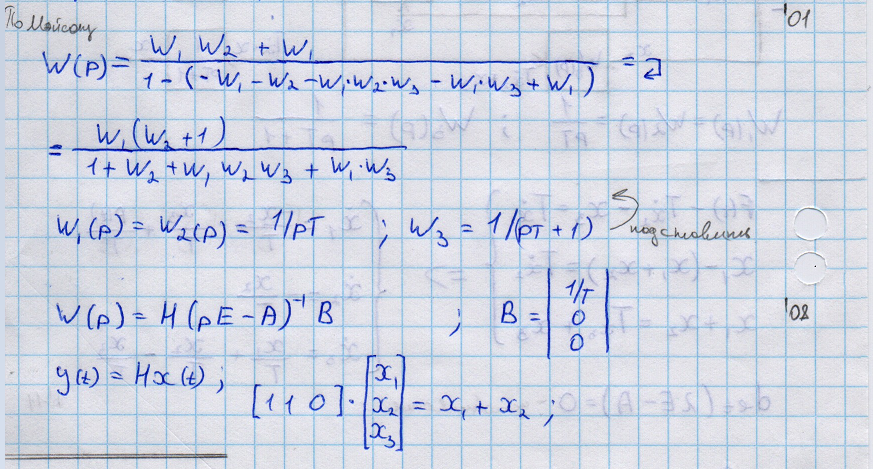 По Мэйсону
'01
W(p) = (W₁ W₂ + W₁) / (1 - (-W₁ - W₂ - W₁·W₂·W₃ - W₁·W₃ + W₁)) =
= W₁(W₂ + 1) / (1 + W₂ + W₁ W₂ W₃ + W₁·W₃)
W₁(p) = W₂(p) = 1/pT ; W₃ = 1/(pT + 1)
подставляем
W(p) = H(pE - A)⁻¹ B ; B = |1/T 0 0|
'08
y(t) = Hx(t) ; [1 1 0] · [x₁ x₂ x₃] = x₁ + x₂ ;